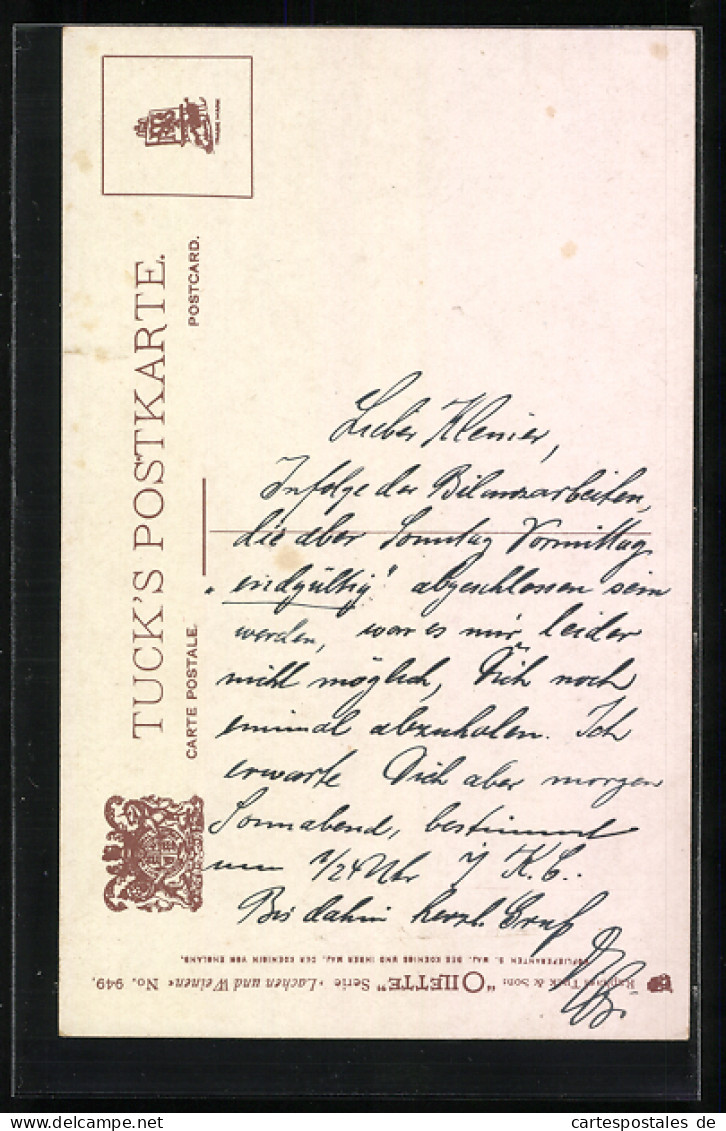 TUCK'S POSTKARTE.
CARTE POSTALE.
POSTCARD.
TRADE MARK
Lieber Kleiner,
Infolge der Bilanzarbeiten,
die aber Sonntag Vormittag
„endgültig" abgeschlossen sein
werden, war es mir leider
nicht möglich, Dich noch
einmal abzuholen. Ich
erwarte Dich aber morgen
Sonnabend, bestimmt
um 1/24 Uhr i/ K. C.
Bis dahin herzl. Gruß
Raphael Tuck & Sons "OILETTE" Serie „Lachen und Weinen" No. 949.
HOFLIEFERANTEN S. MAJ. DES KOENIGS UND IHRER MAJ. DER KOENIGIN VON ENGLAND.
cartespostales de
cartespostales.de